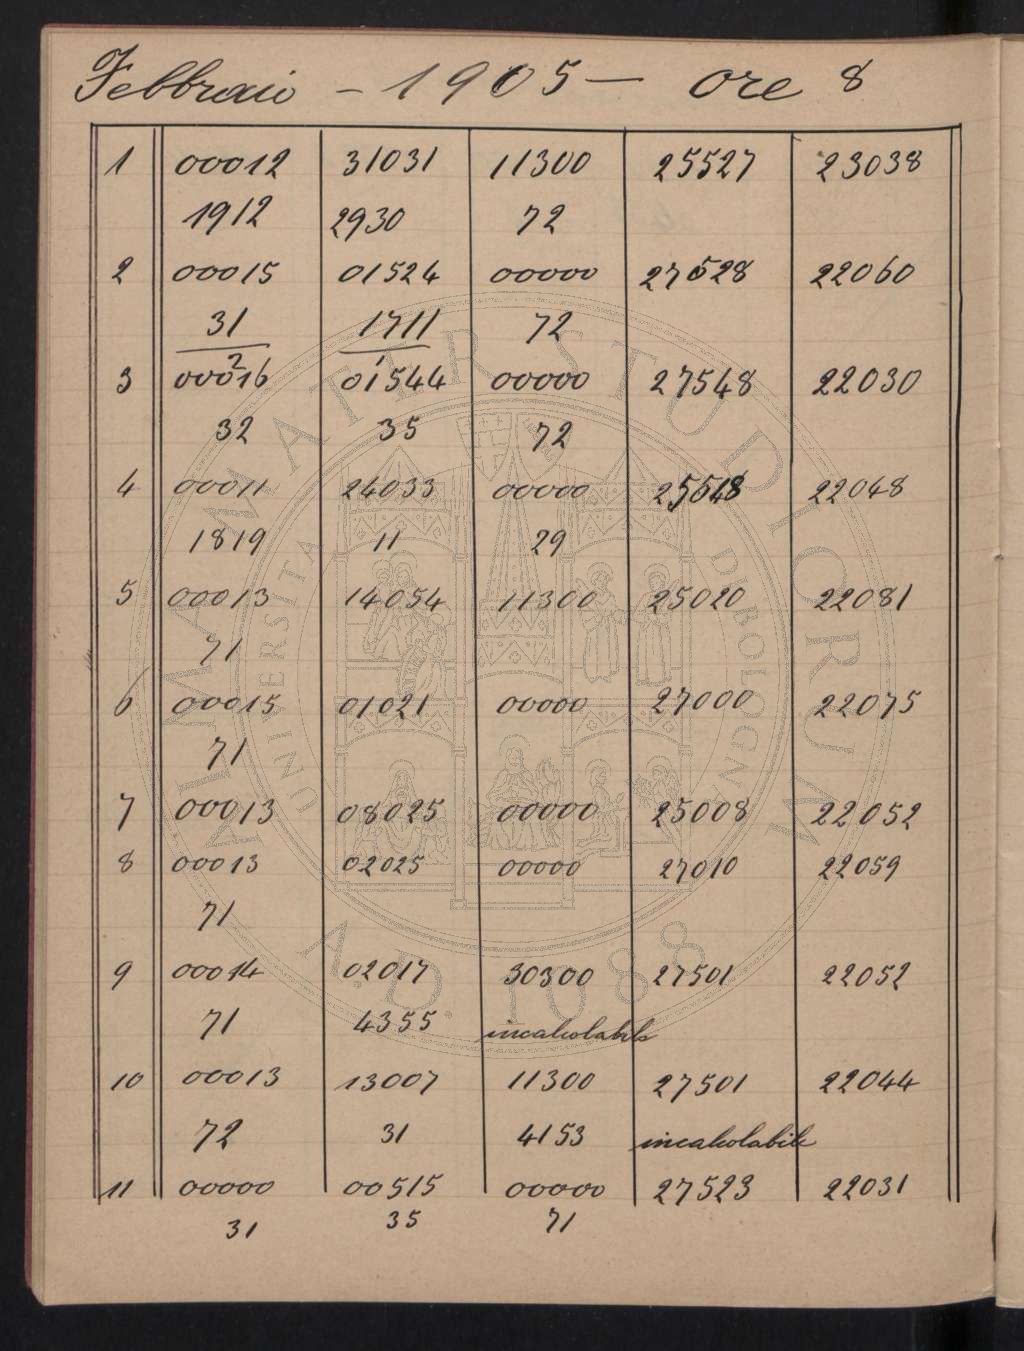 Febbraio - 1905 - ore 8
1 00012 31031 11300 25527 23038
1912 2930 72
2 00015 01524 00000 27528 22060
31 1711 72
2 1
3 00016 01544 00000 27548 22030
32 35 72
4 00011 24033 00000 22048
1819 11 29
5 00013 14054 11300 25020 22081
71
6 00015 01021 00000 27000 22075
71
7 00013 08025 00000 25008 22052
8 00013 02025 00000 27010 22059
71
9 00014 02017 30300 27501 22052
71 4355 incalcolabile
10 00013 13007 11300 27501 22044
72 31 4153 incalcolabile
11 00000 00515 00000 27523 22031
31 35 71
ALMA MATER STUDIORUM
UNIVERSITÀ DI BOLOGNA
A.D. 1088